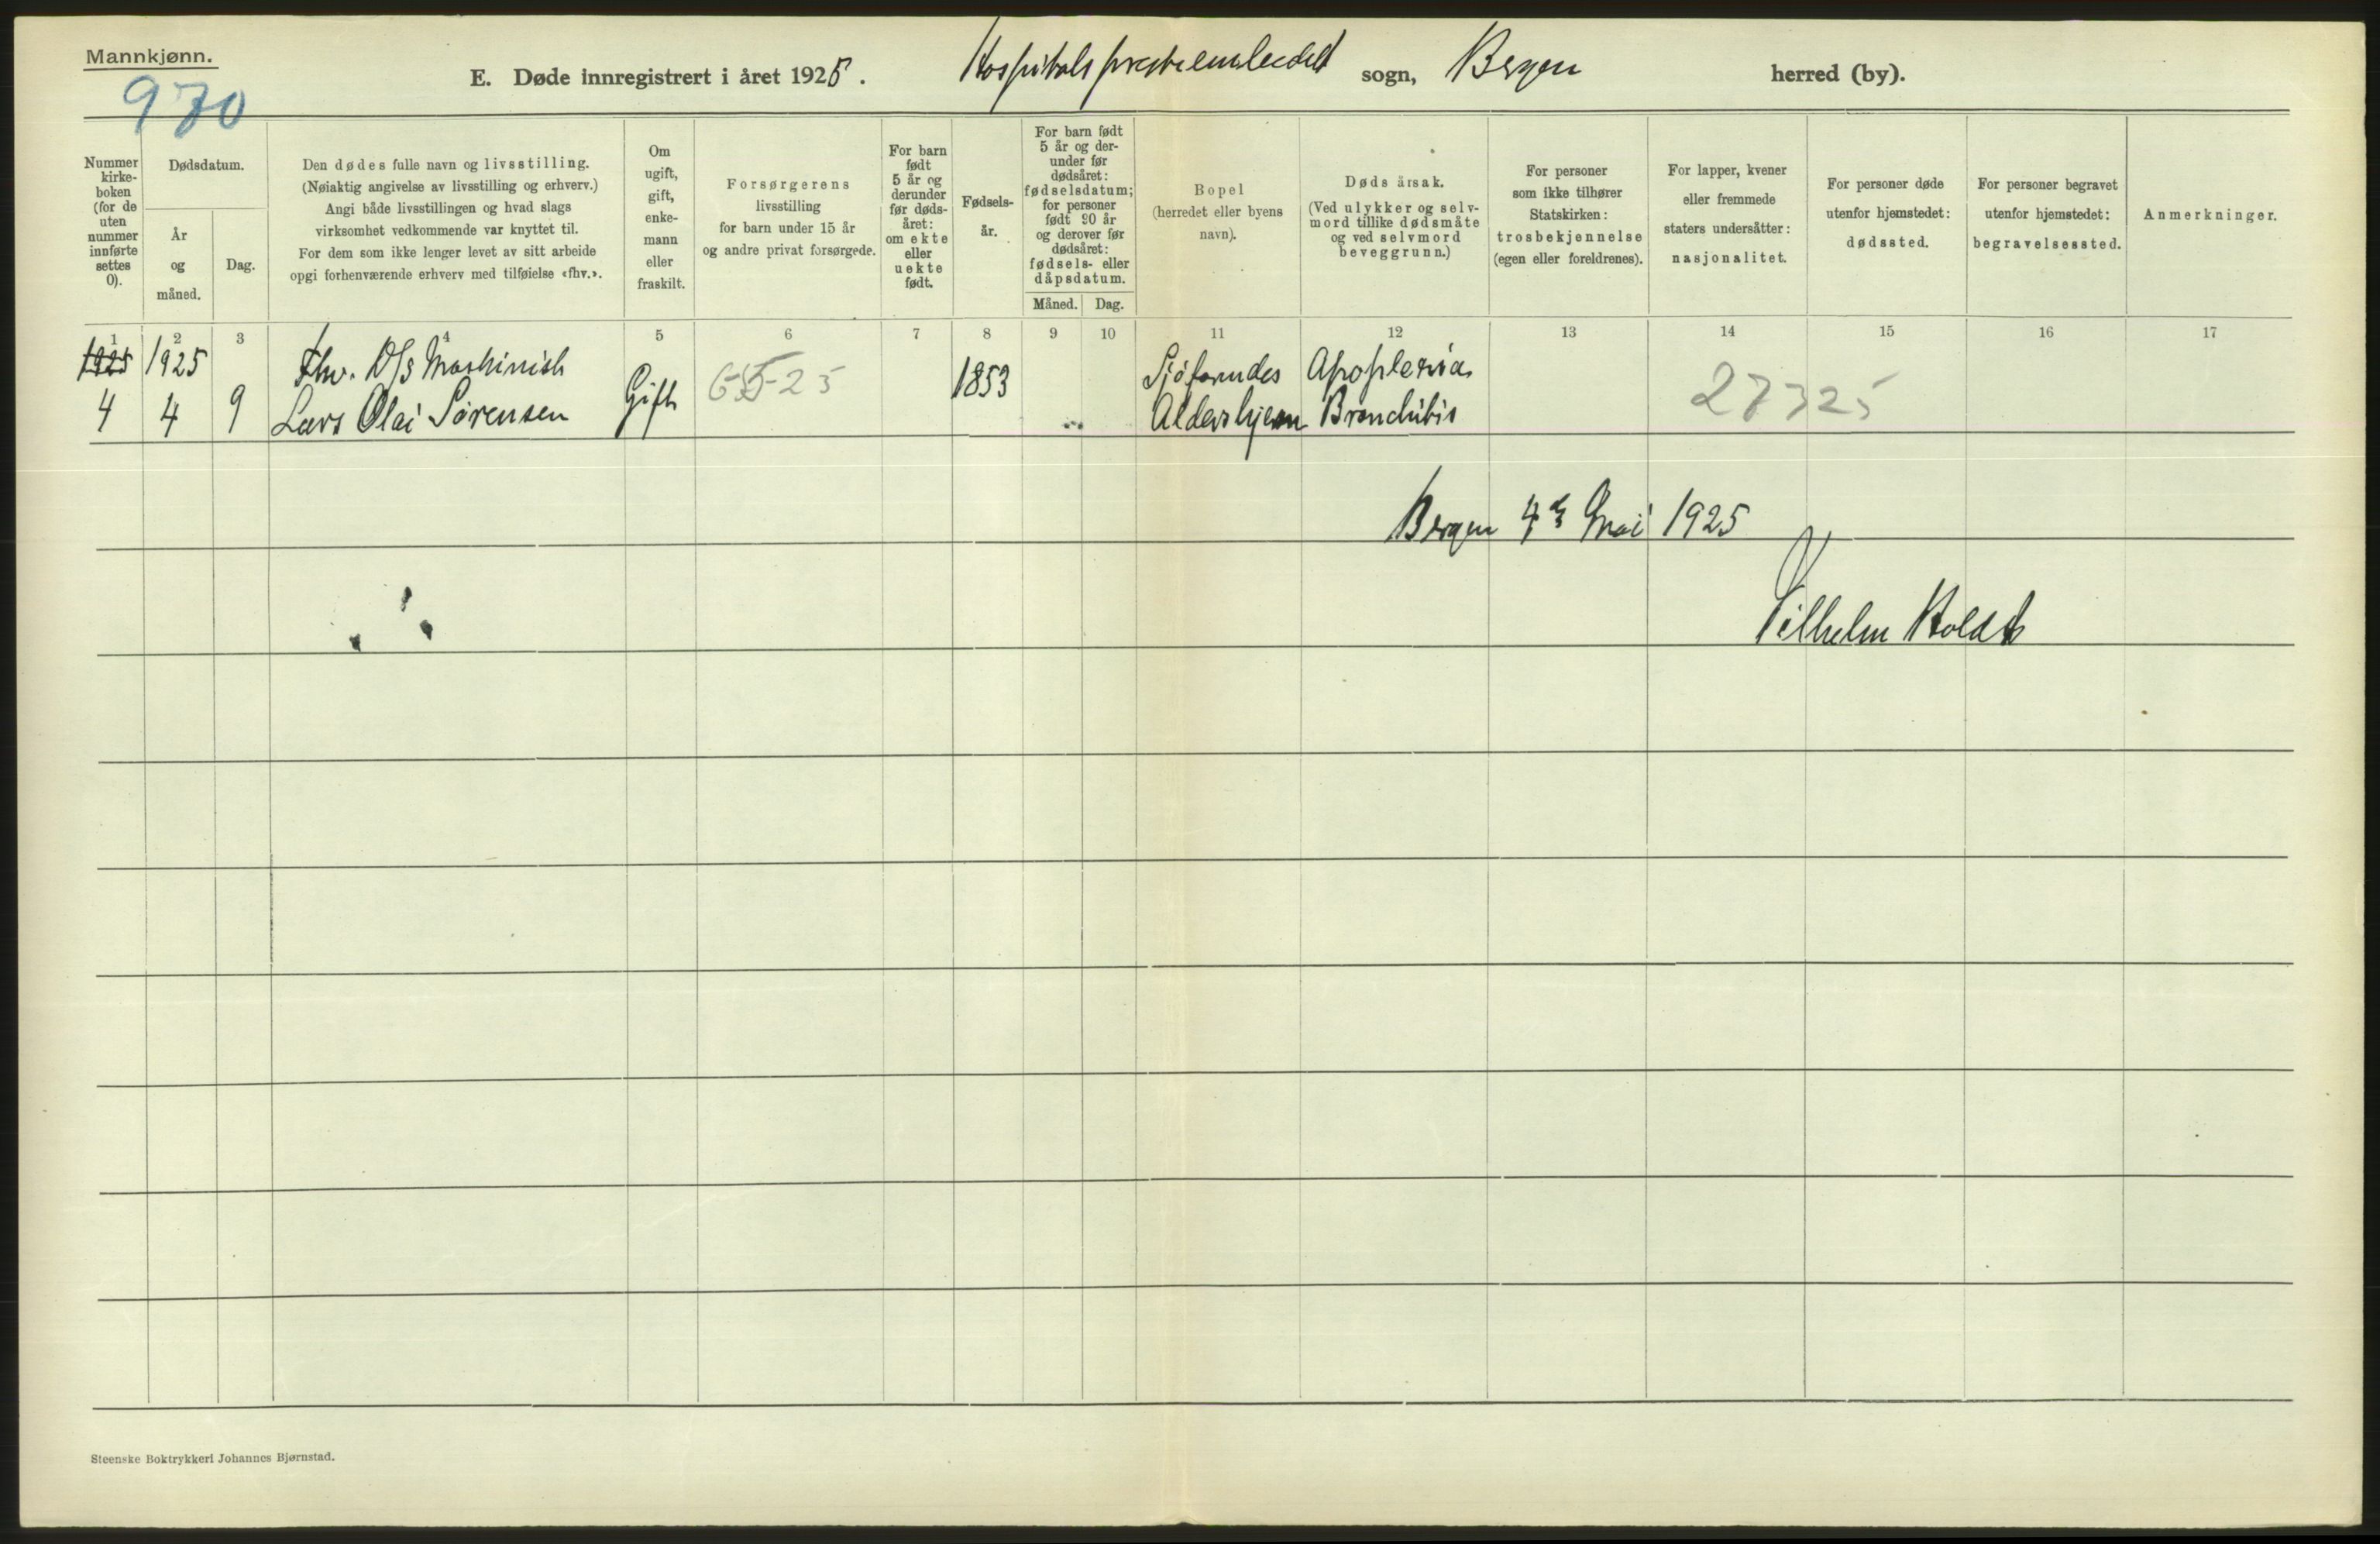 Mannkjønn.
970
E. Døde innregistrert i året 1925. Hospitalspresteembedet sogn, Bergen herred (by).
Nummer
kirke-
boken
(for de
uten
nummer
innførte
settes
0).
Dødsdatum.
År
og
måned.
Dag.
Den dødes fulle navn og livsstilling.
(Nøiaktig angivelse av livsstilling og erhverv.)
Angi både livsstillingen og hvad slags
virksomhet vedkommende var knyttet til.
For dem som ikke lenger levet av sitt arbeide
opgi forhenværende erhverv med tilføielse «fhv.».
Om
ugift,
gift,
enke-
mann
eller
fraskilt.
Forsørgerens
livsstilling
for barn under 15 år
og andre privat forsørgede.
For barn
født
5 år og
derunder
før døds-
året:
om ekte
eller
uekte
født.
Fødsels-
år.
For barn født
5 år og der-
under før
dødsåret:
fødselsdatum;
for personer
født 90 år
og derover før
dødsåret:
fødsels- eller
dåpsdatum.
Måned. Dag.
Bopel
(herredet eller byens
navn).
Dødsårsak.
(Ved ulykker og selv-
mord tillike dødsmåte
og ved selvmord
beveggrunn.)
For personer
som ikke tilhører
Statskirken:
trosbekjennelse
(egen eller foreldrenes).
For lapper, kvener
eller fremmede
staters undersåtter:
nasjonalitet.
For personer døde
utenfor hjemstedet:
dødssted.
For personer begravet
utenfor hjemstedet:
begravelsessted.
Anmerkninger.
1 2 3 4 5 6 7 8 9 10 11 12 13 14 15 16 17
1925 1925 Fhv. D/S Maskinist 1853 Sjøfarendes Apoplexia
4 4 9 Lars Olai Sørensen Gift 6-5-25 Aldershjem Bronchitis 27325
Bergen 4de Mai 1925
Vilhelm Holdt
Steenske Boktrykkeri Johannes Bjørnstad.